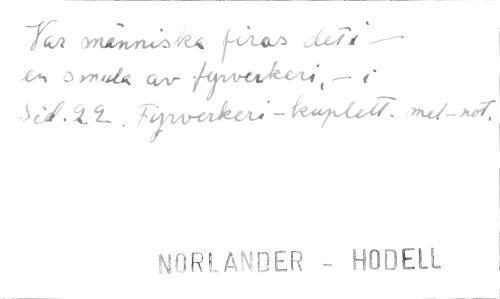 Var människa firas det i —
en smula av fyrverkeri, – i
Sid. 22. Fyrverkeri-kuplett. mel-not.
NORLANDER - HODELL